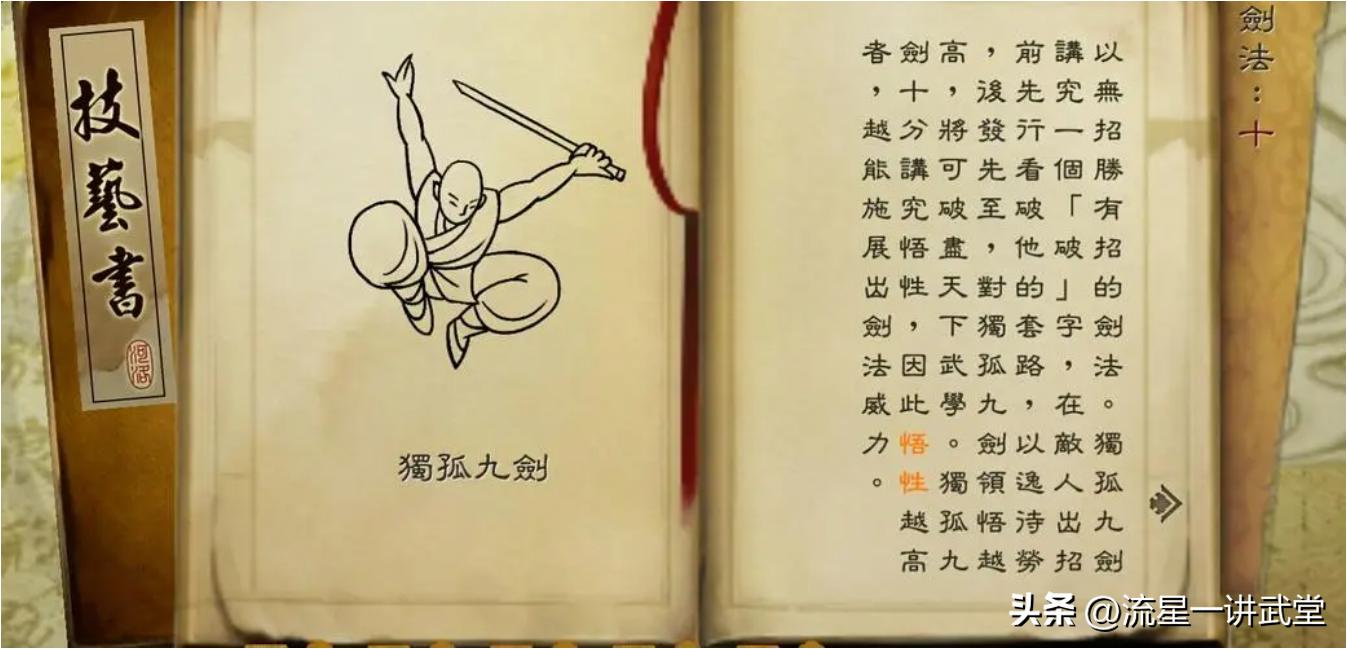 技藝書
河洛
獨孤九劍
劍法：十
以無招勝有招的劍法。獨孤九劍
講究一個「破」字，在敵人出招
前先行看破他的套路，以逸待勞
，後發先至，對獨孤九劍領悟越
高，將可破盡天下武學。獨孤九
劍十分講究悟性，因此悟性越高
者，越能施展出劍法威力。
头条 @流星一讲武堂